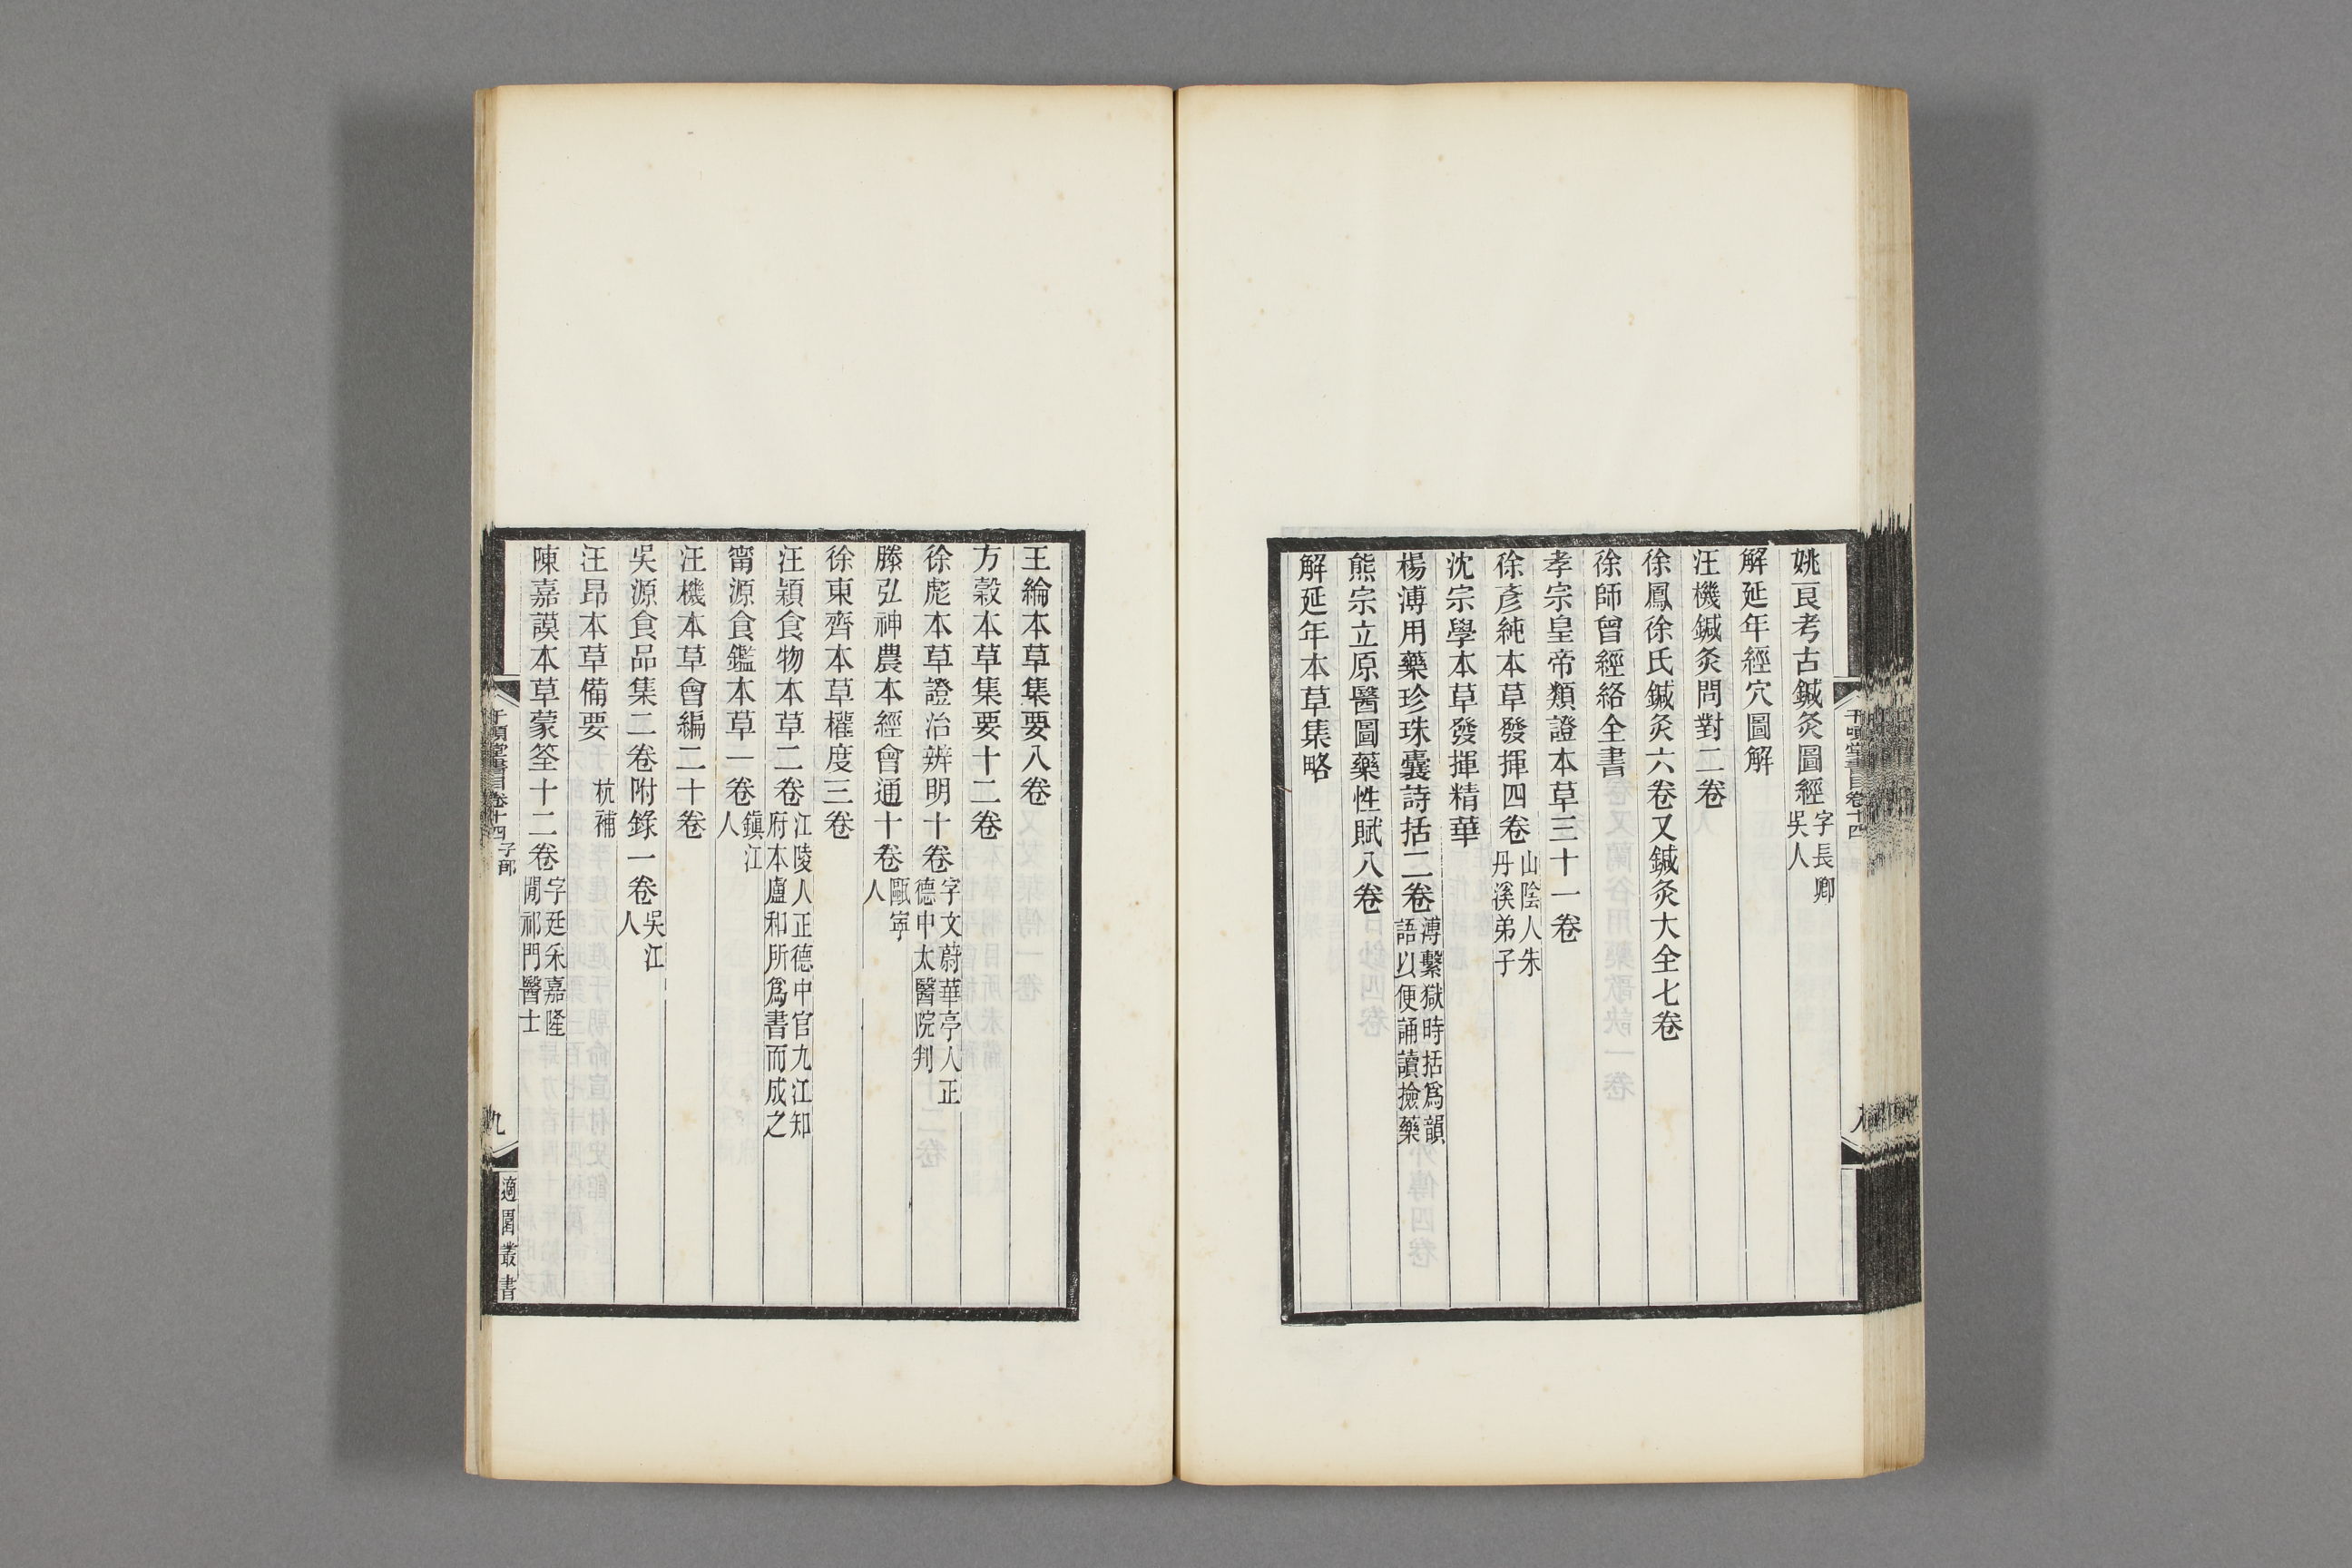 姚良考古鍼灸圖經字長卿吳人
解延年經穴圖解
汪機鍼灸問對二卷
徐鳳徐氏鍼灸六卷又鍼灸大全七卷
徐師曾經絡全書
孝宗皇帝類證本草三十一卷
徐彥純本草發揮四卷山陰人朱丹溪弟子
沈宗學本草發揮精華
楊溥用藥珍珠囊詩括二卷溥繫獄時括爲韻語以便誦讀撿藥
熊宗立原醫圖藥性賦八卷
解延年本草集略
王綸本草集要八卷
方穀本草集要十二卷
徐彪本草證治辨明十卷字文蔚華亭人正德中太醫院判
滕弘神農本經會通十卷甌寧人
徐東齊本草權度三卷
汪穎食物本草二卷江陵人正德中官九江知府本廬和所爲書而成之
甯源食鑑本草一卷鎭江人
汪機本草會編二十卷
吳源食品集二卷附錄一卷吳江人
汪昂本草備要 杭補
陳嘉謨本草蒙筌十二卷字廷采嘉隆閒祁門醫士
千頃堂書目卷十四 子部
九
適園叢書